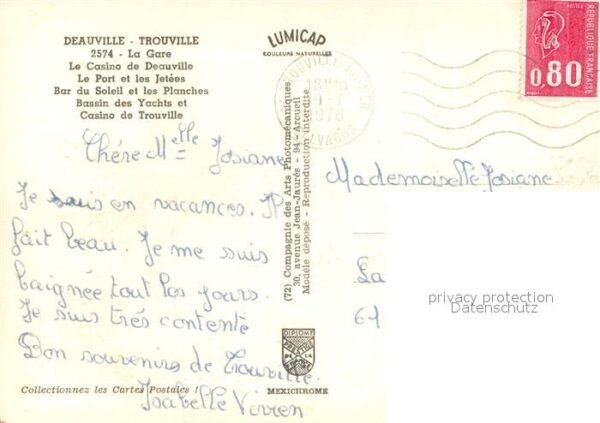 DEAUVILLE - TROUVILLE
2574 - La Gare
Le Casino de Deauville
Le Port et les Jetées
Bar du Soleil et les Planches
Bassin des Yachts et
Casino de Trouville
LUMICAP
COULEURS NATURELLES
TROUVILLE-SUR-MER
18H
1-7
1976
CALVADOS
REPUBLIQUE FRANÇAISE
POSTES
0,80
Chére Melle Josiane
Je suis en vacances. Il
fait beau. Je me suis
baignée tout les jours.
Je suis trés contente
Bon souvenirs de Trouville.
Isabelle Vivien
(72) Compagnie des Arts Photomécaniques
30, avenue Jean-Jaurès - 94 - Arcueil
Modèle déposé - Reproduction interdite
Mademoiselle Josiane
La
61
privacy protection
Datenschutz
DIPLOME
DE LA
Collectionnez les Cartes Postales !
MEXICHROME